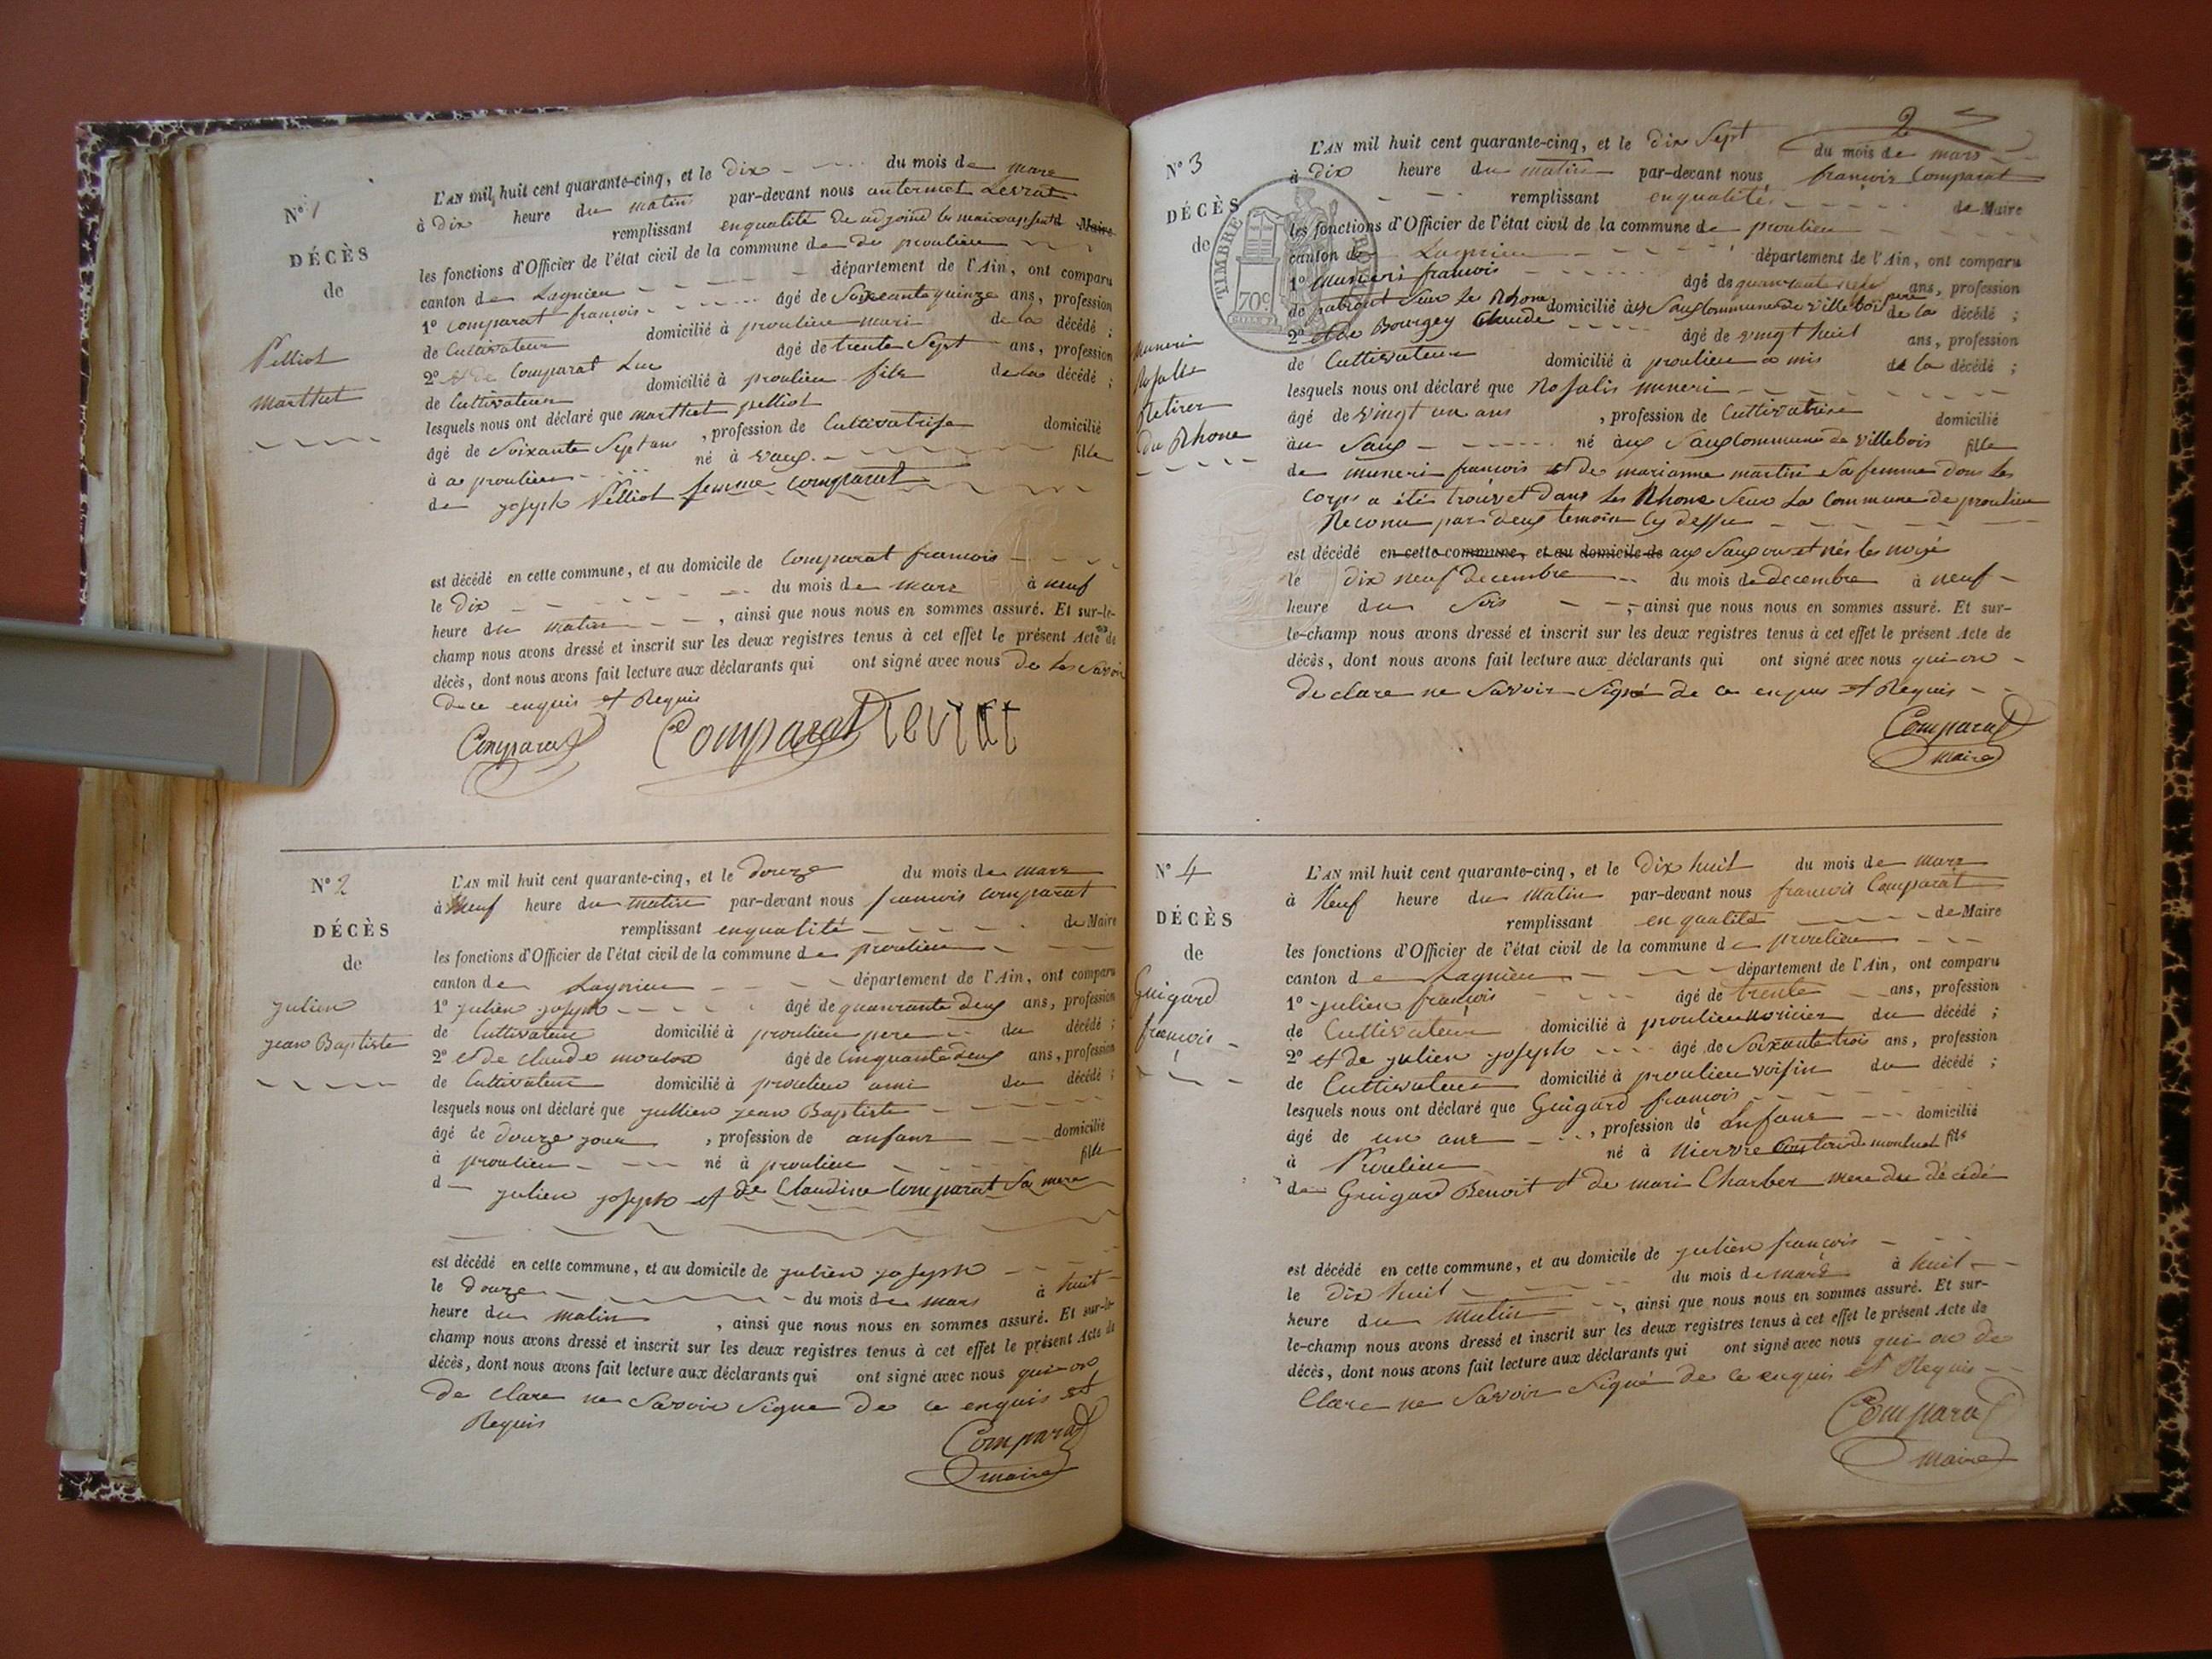 N° 1
DÉCÈS
de
Pelliot
Marthet
L'AN mil huit cent quarante-cinq, et le Dix du mois de mars
à Dix heure du matin par-devant nous antermet Levrat
remplissant enqualité de adjoind le maire apsent Maire
les fonctions d'Officier de l'état civil de la commune de de proulieu
canton de Lagnieu département de l'Ain, ont comparu
1° Comparat francois âgé de Soixante quinze ans, profession
de Cultivateur domicilié à proulieu mari de la décédé ;
2° et de Comparat Luc âgé de trente Sept ans, profession
de Cultivateur domicilié à proulieu fils de la décédé ;
lesquels nous ont déclaré que marthet pelliot
âgé de Soixante Sept ans, profession de Cultivatrise domicilié
à a proulieu né à vaux fille
de joseph Pelliot femme comparat
est décédé en cette commune, et au domicile de Comparat francois
le Dix du mois de mars à neuf
heure du matin, ainsi que nous nous en sommes assuré. Et sur-le-
champ nous avons dressé et inscrit sur les deux registres tenus à cet effet le présent Acte de
décès, dont nous avons fait lecture aux déclarants qui ont signé avec nous de les Savoir
de ce enquis et Requis
Comparat Comparat Levrat
N° 2
DÉCÈS
de
julien
jean Baptiste
L'AN mil huit cent quarante-cinq, et le Douze du mois de mars
à Neuf heure du matin par-devant nous francois comparat
remplissant enqualité de Maire
les fonctions d'Officier de l'état civil de la commune de proulieu
canton de Lagnieu département de l'Ain, ont comparu
1° julien joseph âgé de quanrante deux ans, profession
de Cultivateur domicilié à proulieu pere du décédé ;
2° et de claude âgé de Cinquante deux ans, profession
de Cultivateur domicilié à proulieu ami du décédé ;
lesquels nous ont déclaré que jullien jean Baptiste
âgé de douze jour, profession de anfant domicilié
à proulieu né à proulieu fille
d julien joseph et de Claudine Comparat Sa mere
est décédé en cette commune, et au domicile de julien joseph
le Douze du mois de mars à huit
heure du matin, ainsi que nous nous en sommes assuré. Et sur-le-
champ nous avons dressé et inscrit sur les deux registres tenus à cet effet le présent Acte de
décès, dont nous avons fait lecture aux déclarants qui ont signé avec nous qui on
de clare ne Savoir Signe de ce enquis et
Requis
Comparat
maire
2
N° 3
DÉCÈS
de
muneri
Rosalie
Retirer
du Rhone
TIMBRE ROYAL
70c
L'AN mil huit cent quarante-cinq, et le dix Sept du mois de mars
à Dix heure du matin par-devant nous françois Comparat
remplissant enqualité de Maire
les fonctions d'Officier de l'état civil de la commune de proulieu
canton de Lagnieu département de l'Ain, ont comparu
1° muneri francois âgé de quanrante ans, profession
de Seur le Rhone domicilié aux Saux Commune de villebois pere de la décédé ;
2° et de Bourgey Claude âgé de vingt huit ans, profession
de Cultivateur domicilié à proulieu a mis de la décédé ;
lesquels nous ont déclaré que Rosalis muneri
âgé de vingt un ans, profession de Cultivatrise domicilié
au Saux né aux Saux Commune de villebois fille
de muneri francois et de marianne martin Sa femme dont les
Corps a été trouvet Dans les Rhone Seur La Commune de proulieu
Reconu par deux temoin cy dessu
est décédé en cette commune, et au domicile de aux Saux noyé
le dix neuf decembre du mois de decembre à neuf
heure du Soir, ainsi que nous nous en sommes assuré. Et sur-
le-champ nous avons dressé et inscrit sur les deux registres tenus à cet effet le présent Acte de
décès, dont nous avons fait lecture aux déclarants qui ont signé avec nous qui on
de clare ne Savoir Signé de ce enquis et Requis
Comparat
maire
N° 4
DÉCÈS
de
Guigard
françois
L'AN mil huit cent quarante-cinq, et le Dix huit du mois de mars
à Neuf heure du Matin par-devant nous francois Comparat
remplissant en qualité de Maire
les fonctions d'Officier de l'état civil de la commune de proulieu
canton de Lagnieu département de l'Ain, ont comparu
1° julien françois âgé de trente ans, profession
de Cultivateur domicilié à proulieu noricier du décédé ;
2° et de julien joseph âgé de Soixante trois ans, profession
de Cultivateur domicilié à proulieu voisin du décédé ;
lesquels nous ont déclaré que Guigard francois
âgé de un ans, profession de Enfant domicilié
à Proulieu né à Nievre Canton de montluel fils
de Guigard Benoit et de mari Charber mere du décédé
est décédé en cette commune, et au domicile de julien françois
le Dix huit du mois de mars à huit
heure du Matin, ainsi que nous nous en sommes assuré. Et sur-
le-champ nous avons dressé et inscrit sur les deux registres tenus à cet effet le présent Acte de
décès, dont nous avons fait lecture aux déclarants qui ont signé avec nous qui on de
Clare ne Savoir Signé de ce enquis et Requis
Comparat
maire